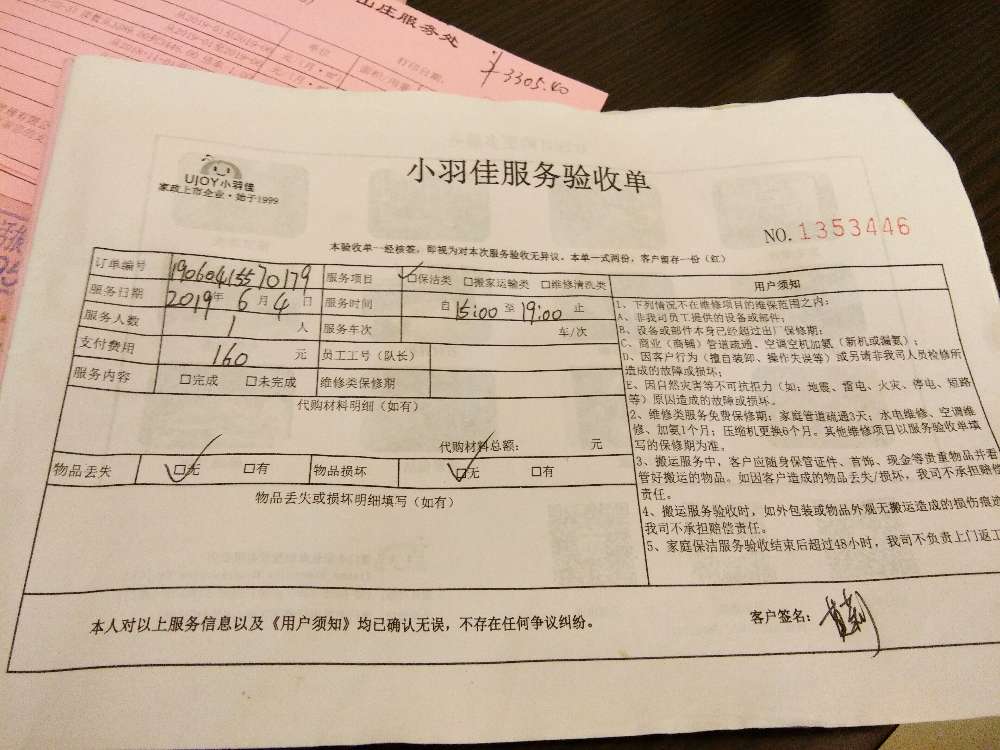 山庄服务处
打印日期:
单位
¥3305.40
UJOY小羽佳
家政上市企业·始于1999
小羽佳服务验收单
NO. 1353446
本验收单一经核签，即视为对本次服务验收无异议。本单一式两份，客户留存一份（红）
订单编号 19060415570179 服务项目 ☑保洁类 □搬家运输类 □维修清洗类
服务日期 2019年6月4日 服务时间 自 15:00 至 19:00 止
服务人数 1 人 服务车次 车/次
支付费用 160 元 员工工号（队长）
服务内容 □完成 □未完成 维修类保修期
代购材料明细（如有）
代购材料总额: 元
物品丢失 ☑无 □有 物品损坏 ☑无 □有
物品丢失或损坏明细填写（如有）
用户须知
1、下列情况不在维修项目的维保范围之内:
A、非我司员工提供的设备或部件;
B、设备或部件本身已经超过出厂保修期;
C、商业（商铺）管道疏通、空调空机加氨（新机或漏氨）;
D、因客户行为（擅自装卸、操作失误等）或另请非我司人员检修所
造成的故障或损坏;
E、因自然灾害等不可抗拒力（如: 地震、雷电、火灾、停电、短路
等）原因造成的故障或损坏。
2、维修类服务免费保修期: 家庭管道疏通3天; 水电维修、空调维
修、加氨1个月; 压缩机更换6个月。其他维修项目以服务验收单填
写的保修期为准。
3、搬运服务中，客户应随身保管证件、首饰、现金等贵重物品并看
管好搬运的物品。如因客户造成的物品丢失/损坏，我司不承担赔偿
责任。
4、搬运服务验收时，如外包装或物品外观无搬运造成的损伤痕迹
我司不承担赔偿责任。
5、家庭保洁服务验收结束后超过48小时，我司不负责上门返工
本人对以上服务信息以及《用户须知》均已确认无误，不存在任何争议纠纷。
客户签名: